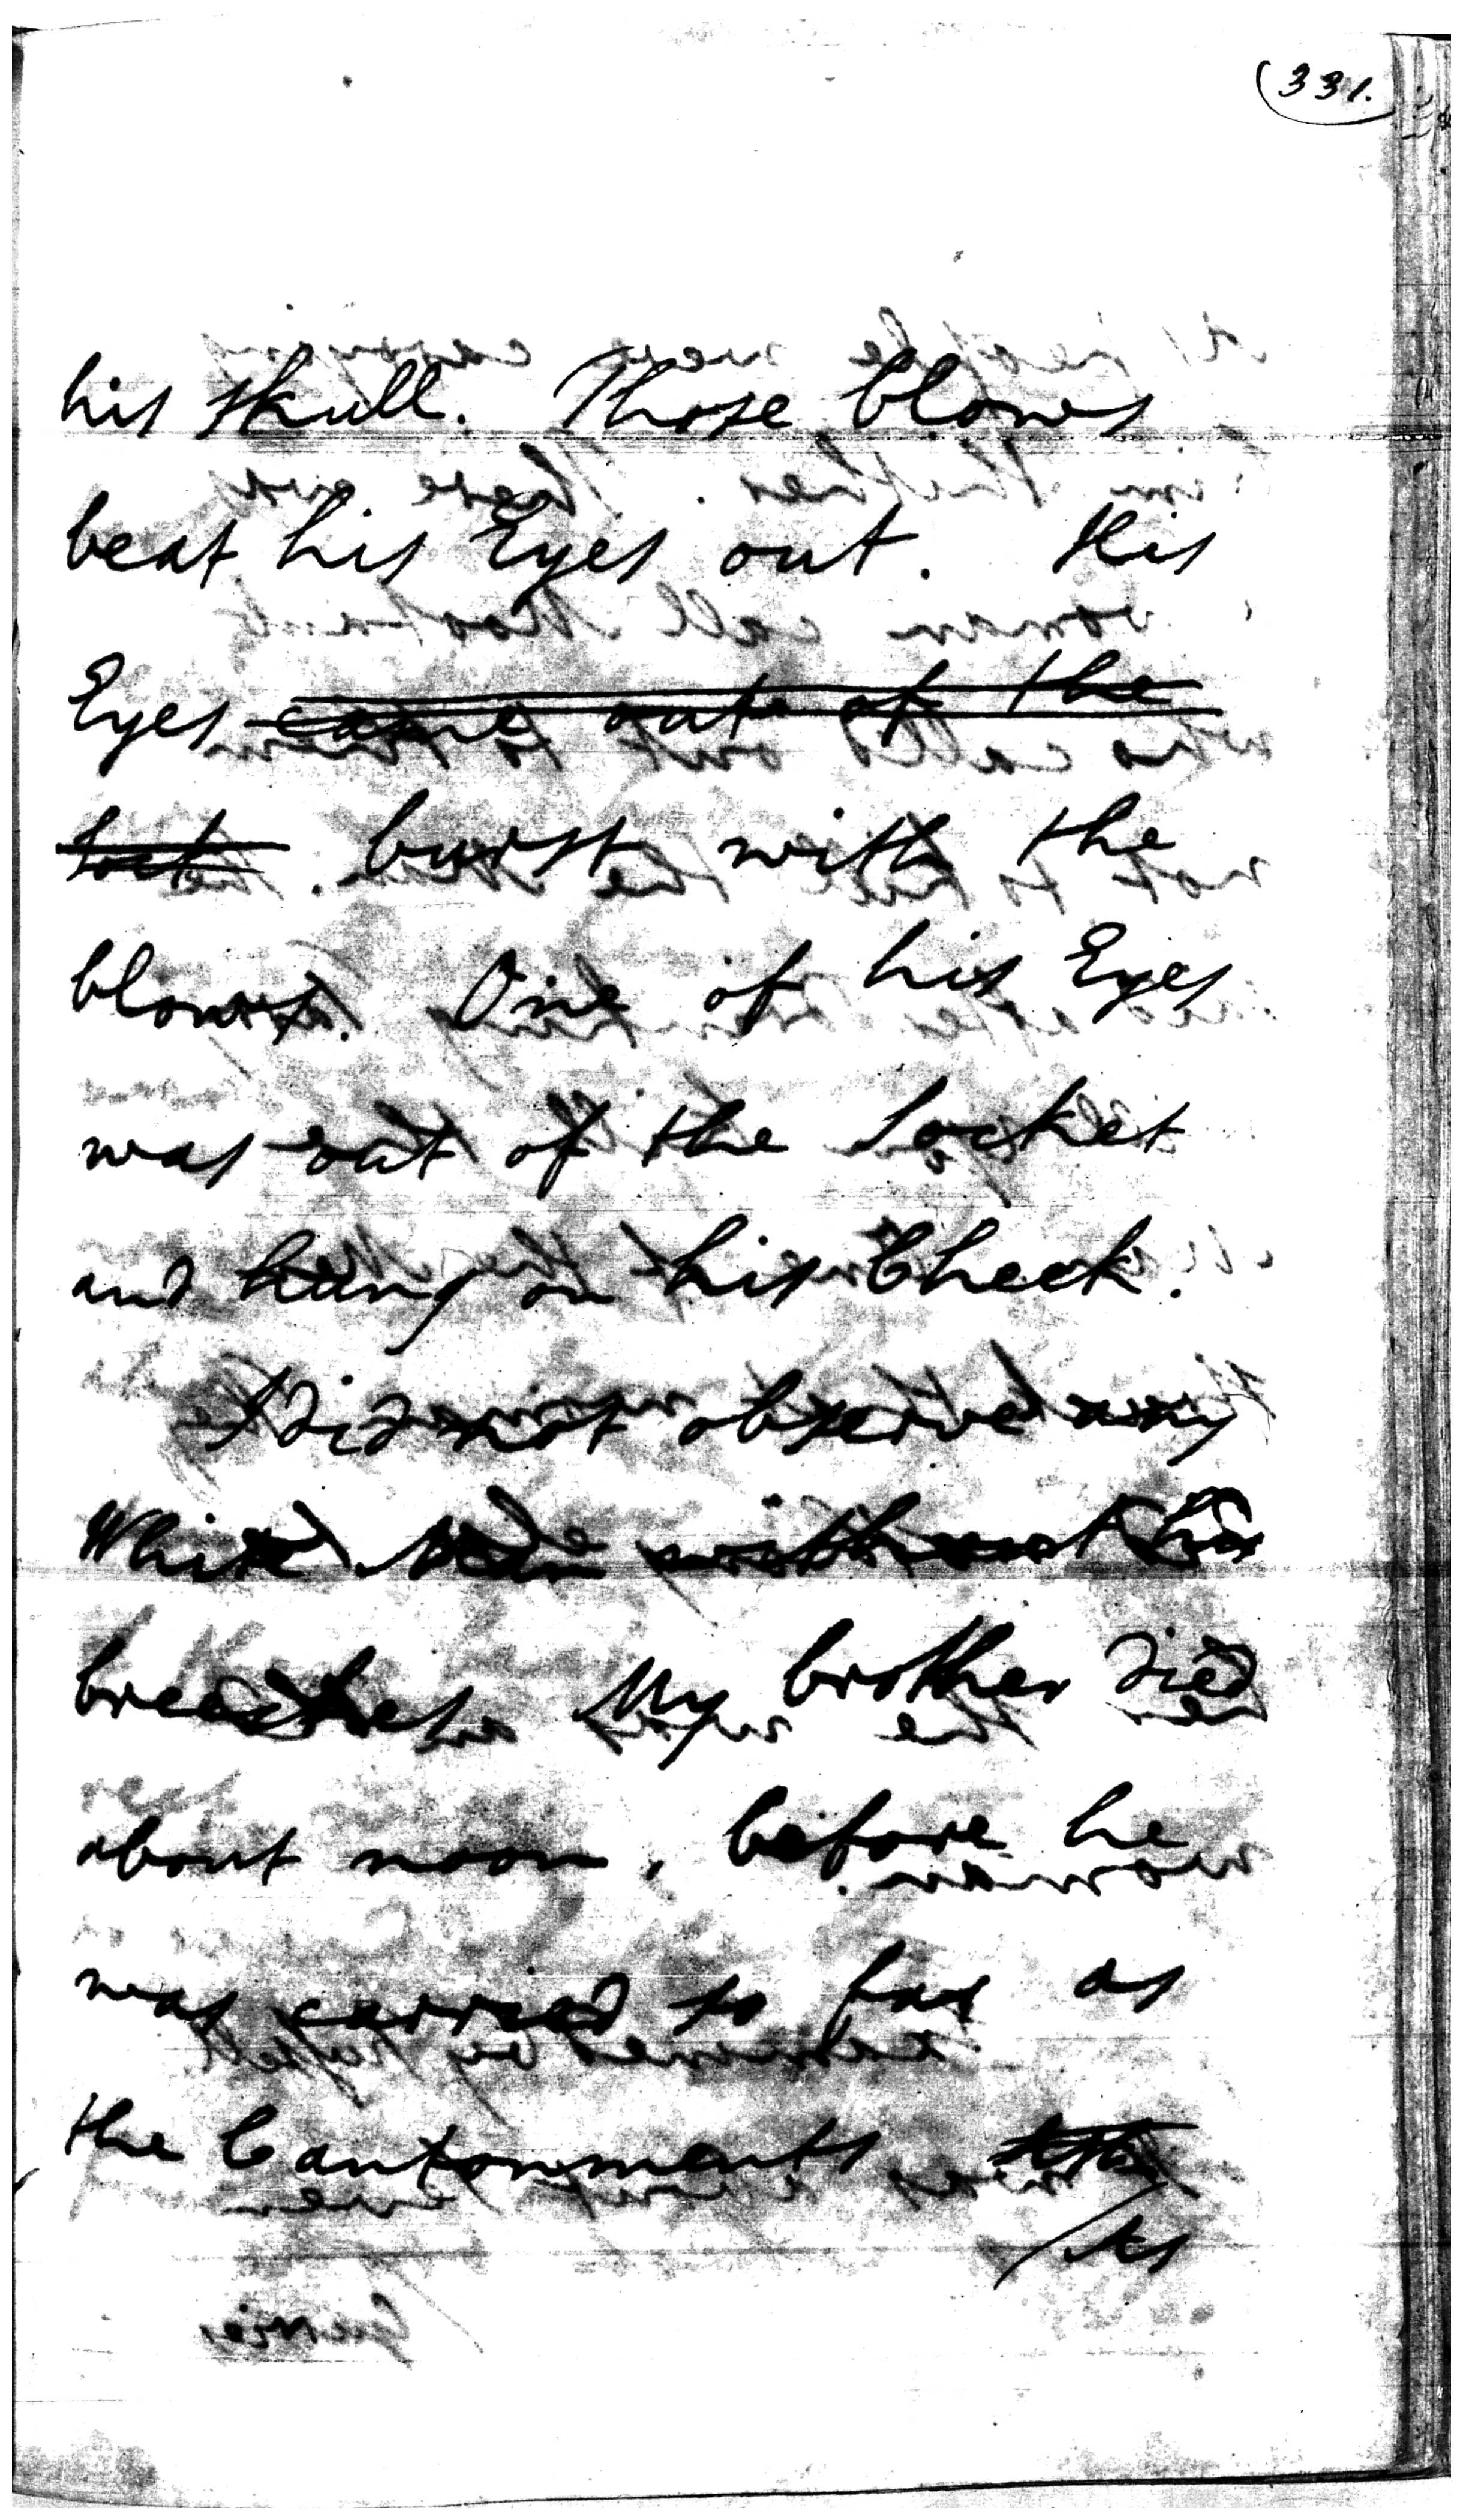 (331.
his skull. Those blows
beat his Eyes out. His
Eyes came out of the
Sock burst with the
blows. One of his Eyes
was out of the Socket
and hung on his Cheek.
I did not observe any
White
My brother died
about noon, before he
was carried so far as
the Cantonments
As